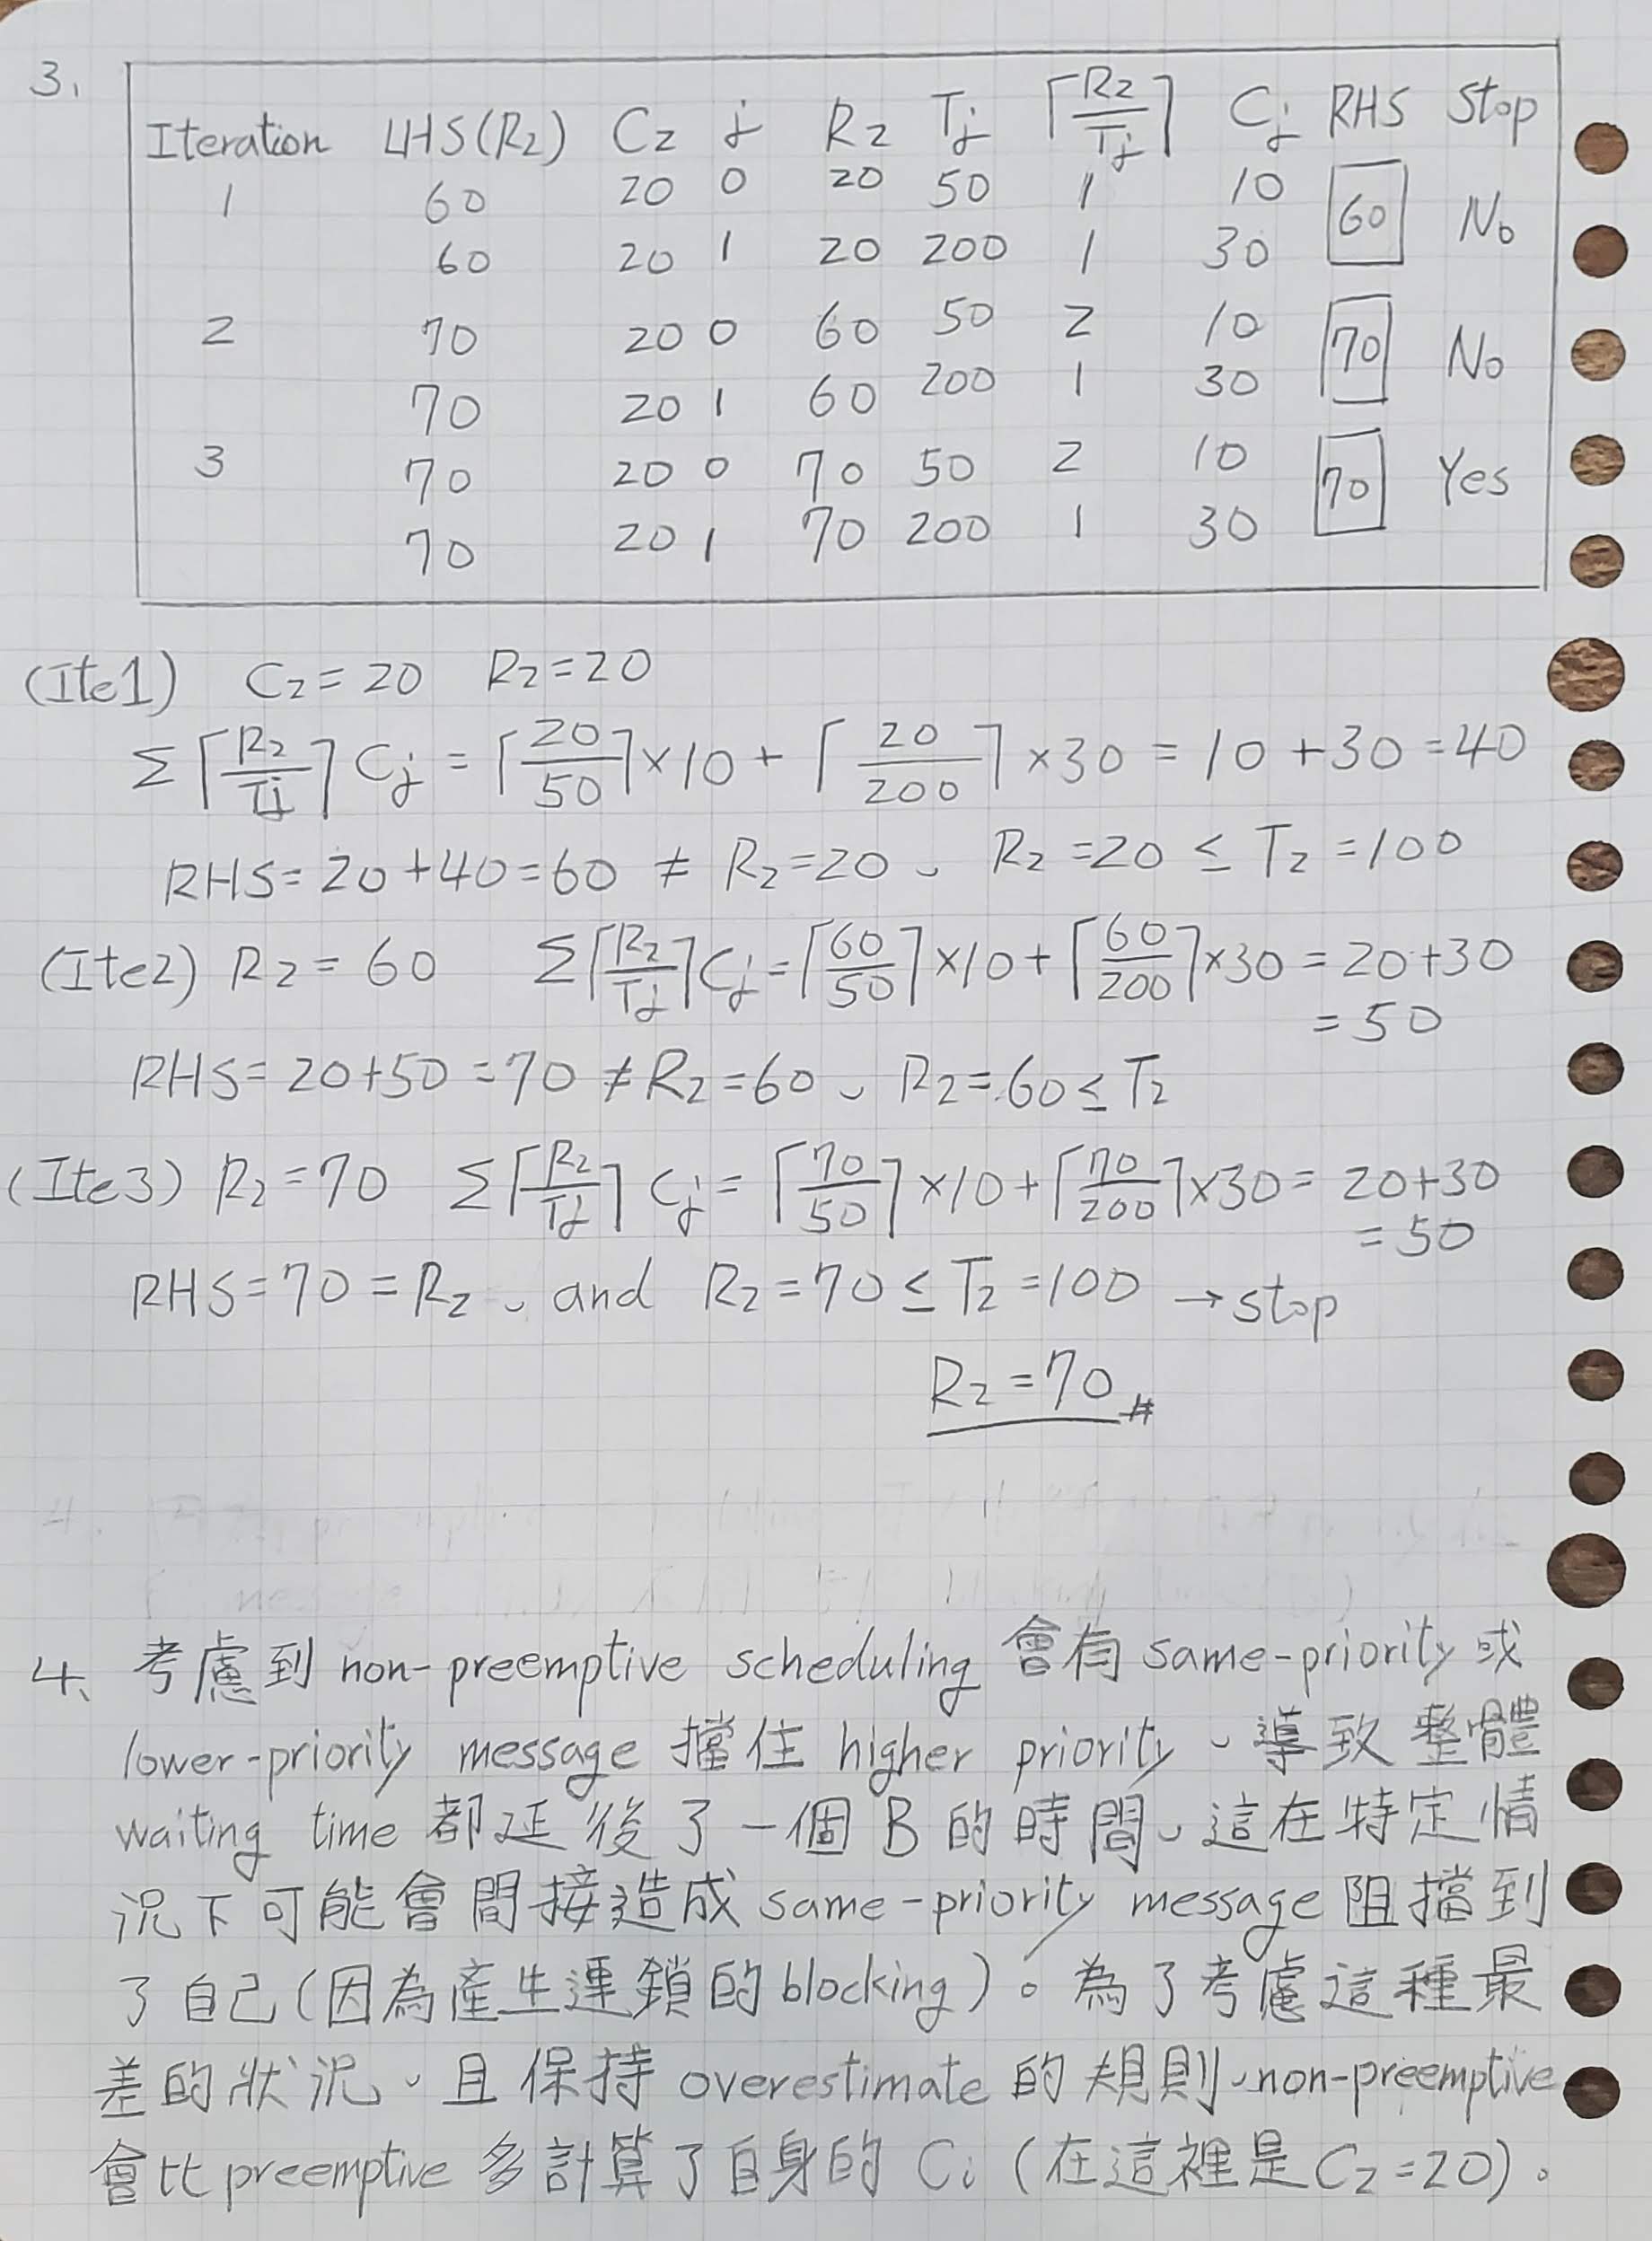 3.
Iteration LHS(R₂) C₂ j R₂ Tⱼ ⌈R₂/Tⱼ⌉ Cⱼ RHS Stop
1 60 20 0 20 50 1 10 60 No
60 20 1 20 200 1 30
2 70 20 0 60 50 2 10 70 No
70 20 1 60 200 1 30
3 70 20 0 70 50 2 10 70 Yes
70 20 1 70 200 1 30
(Ite1) C₂=20 R₂=20
Σ⌈R₂/Tⱼ⌉Cⱼ = ⌈20/50⌉×10 + ⌈20/200⌉×30 = 10+30=40
RHS=20+40=60 ≠ R₂=20、R₂=20 ≤ T₂=100
(Ite2) R₂=60 Σ⌈R₂/Tⱼ⌉Cⱼ=⌈60/50⌉×10+⌈60/200⌉×30=20+30
=50
RHS=20+50=70≠R₂=60、R₂=60≤T₂
(Ite3) R₂=70 Σ⌈R₂/Tⱼ⌉Cⱼ=⌈70/50⌉×10+⌈70/200⌉×30=20+30
=50
RHS=70=R₂、and R₂=70≤T₂=100 →stop
R₂=70 #
4、考慮到 non-preemptive scheduling 會有 same-priority 或
lower-priority message 擋住 higher priority、導致整體
waiting time 都延後了一個 B 的時間、這在特定情
況下可能會間接造成 same-priority message 阻擋到
了自己(因為產生連鎖的 blocking)。為了考慮這種最
差的狀況、且保持 overestimate 的規則、non-preemptive
會比 preemptive 多計算了自身的 Cᵢ (在這裡是C₂=20)。